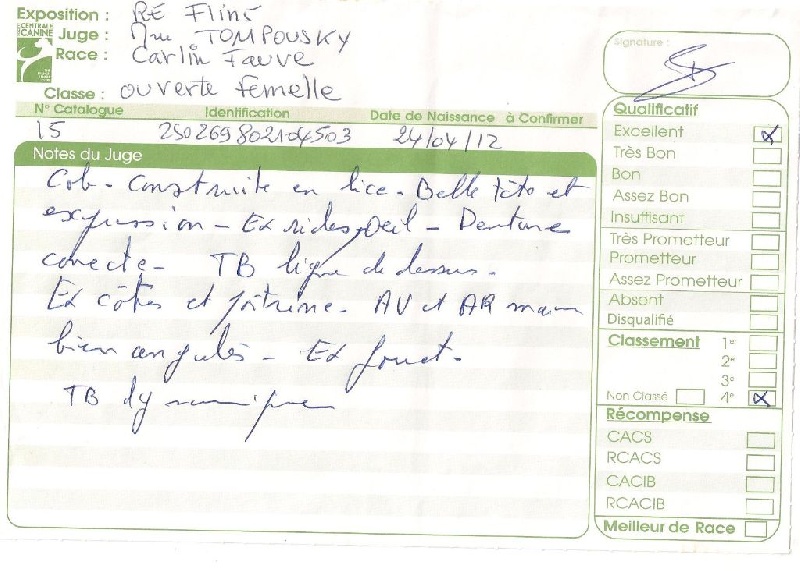 Exposition : RE Flins
CENTRALE CANINE
Juge : Mme TOMPOUSKY
Race : Carlin Fauve
Classe : ouverte femelle
N° Catalogue Identification Date de Naissance à Confirmer
15 250269802104503 24/04/12
Notes du Juge
Cob - Construite en lice - Belle tête et
expression - Ex rides, oeil - Denture
correcte - TB ligne de dessus -
Ex côtes et poitrine - AV et AR
bien angulés - Ex fouet -
TB dynamique
Signature :
Qualificatif
Excellent
Très Bon
Bon
Assez Bon
Insuffisant
Très Prometteur
Prometteur
Assez Prometteur
Absent
Disqualifié
Classement 1e
2e
3e
Non Classé 4e
Récompense
CACS
RCACS
CACIB
RCACIB
Meilleur de Race